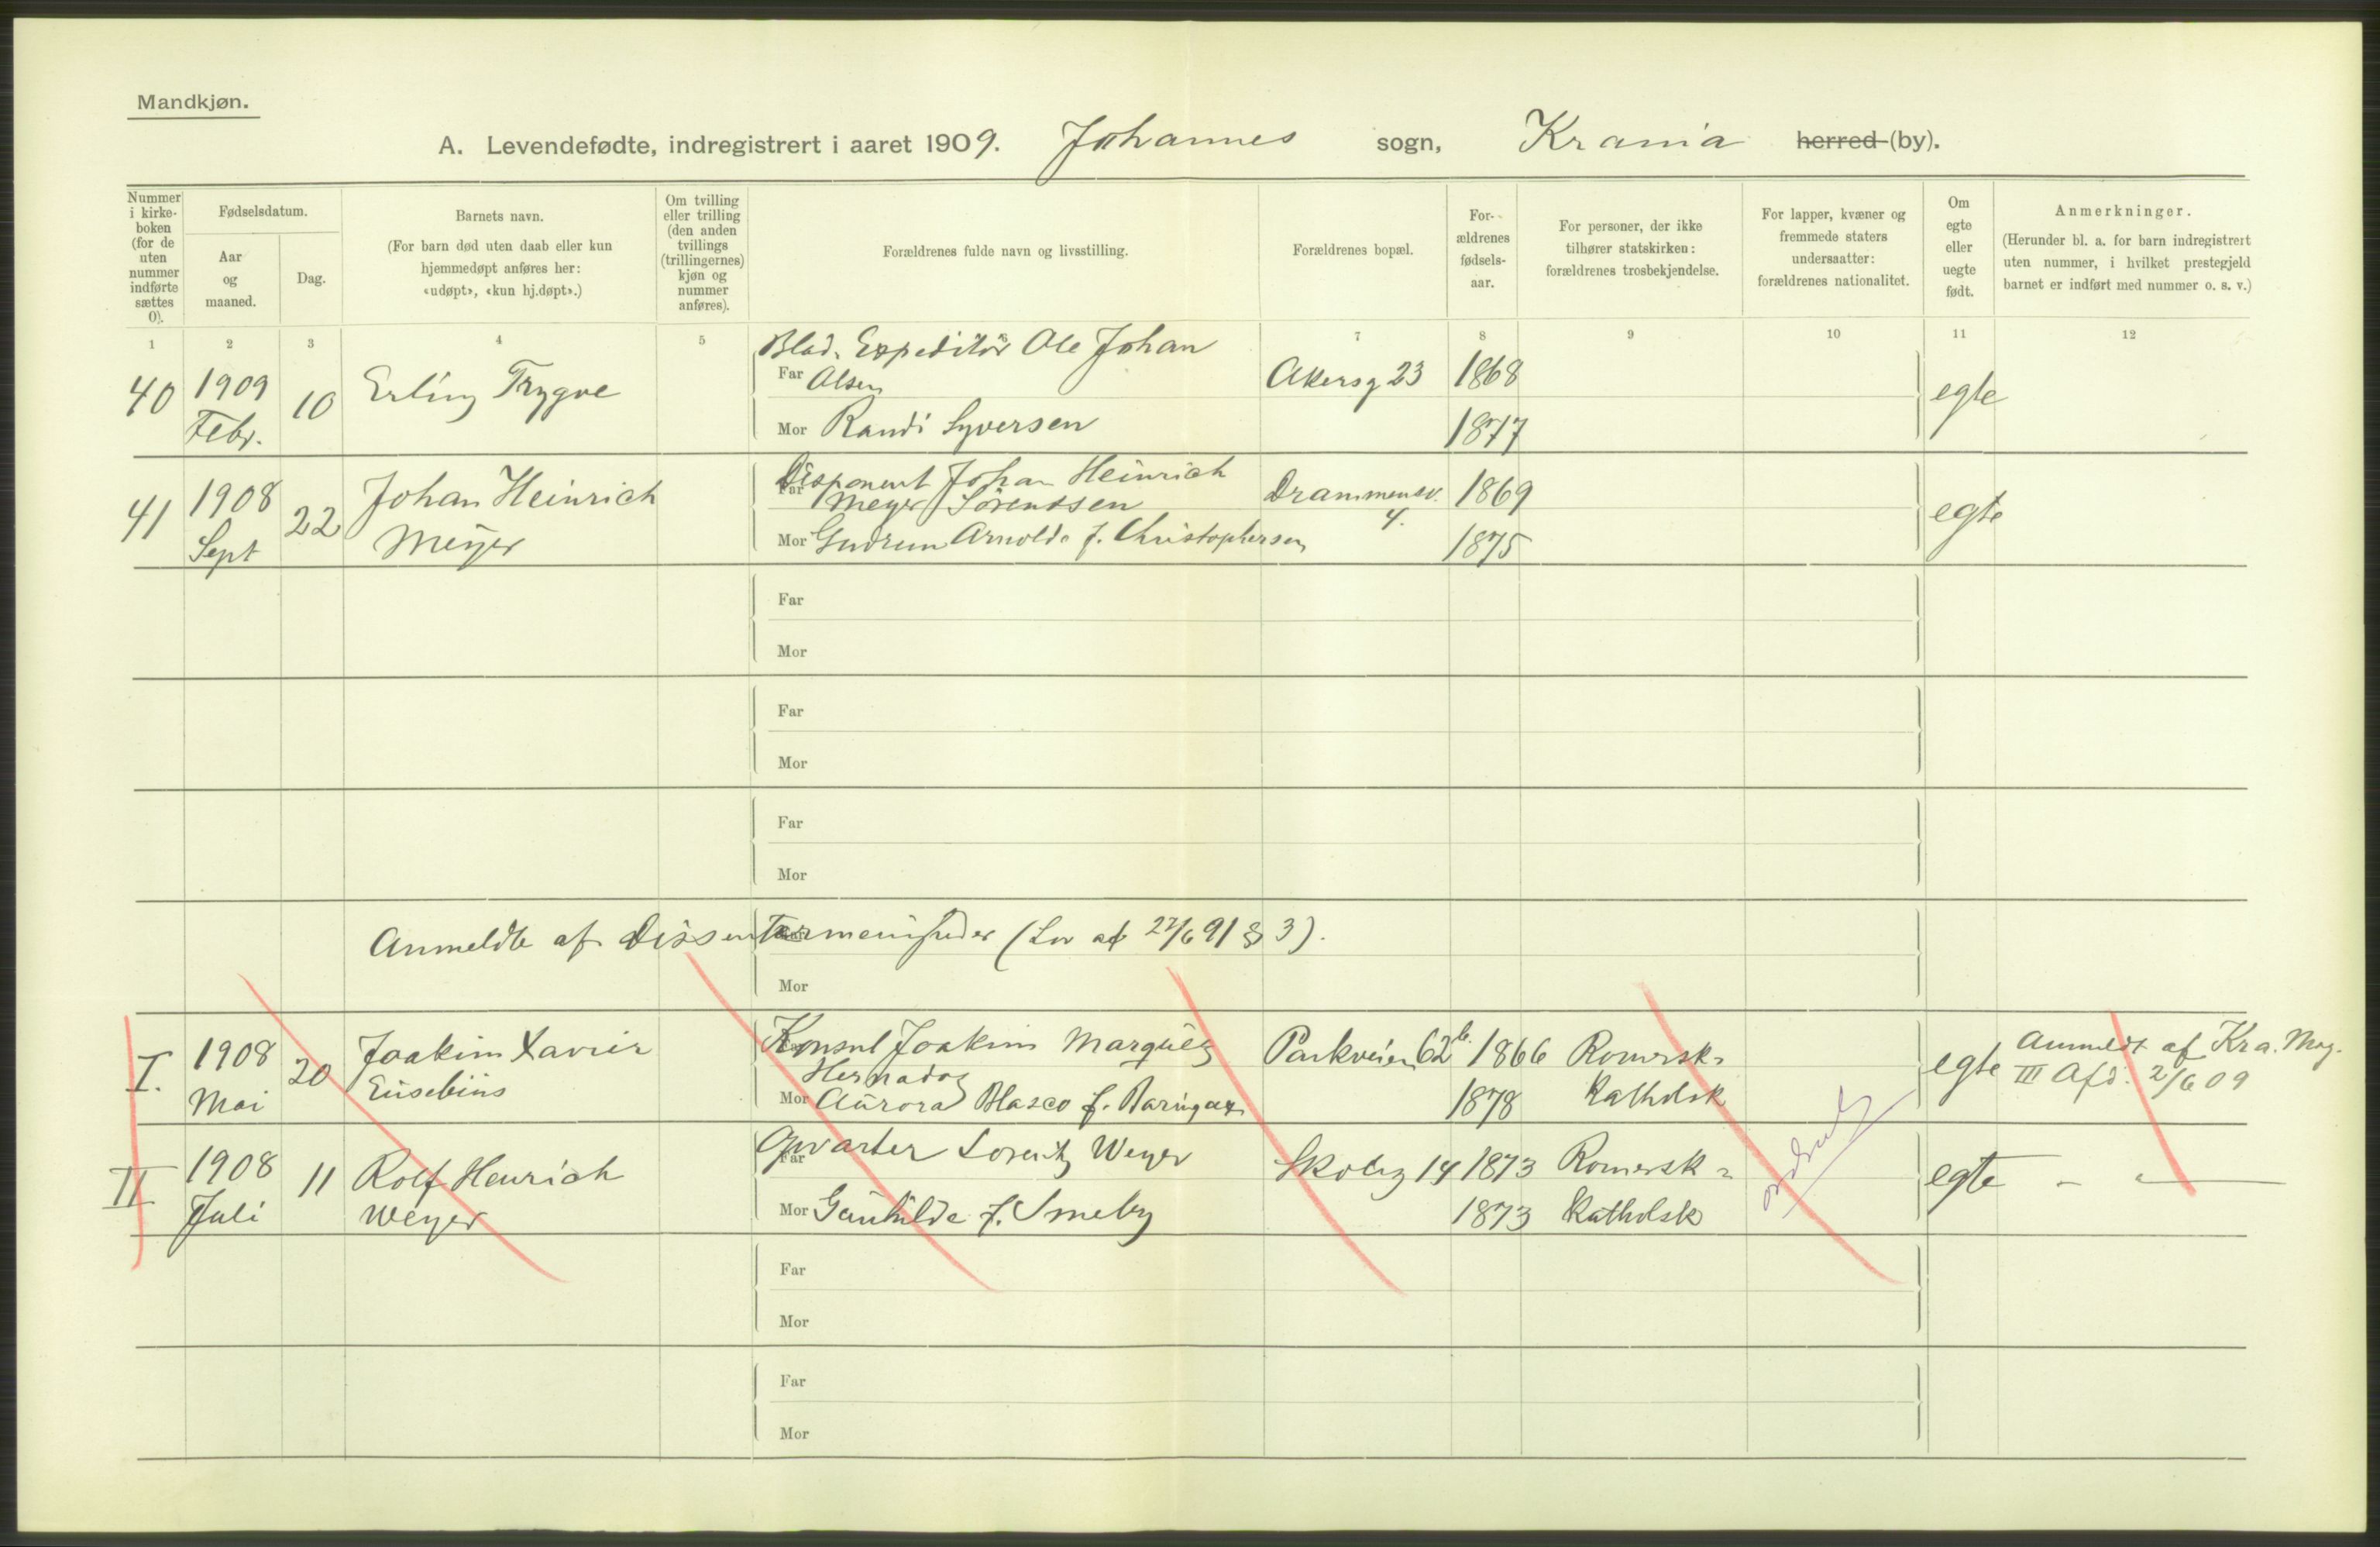 Mandkjøn.
A. Levendefødte, indregistrert i aaret 1909. Johannes sogn, Krania herred (by).
Nummer i kirke-boken (for de uten nummer indførte sættes 0).
Fødselsdatum.
Aar og maaned.
Dag.
Barnets navn.
(For barn død uten daab eller kun
hjemmedøpt anføres her:
«udøpt», «kun hj.døpt».)
Om tvilling
eller trilling
(den anden
tvillings
(trillingernes)
kjøn og
nummer
anføres).
Forældrenes fulde navn og livsstilling.
Forældrenes bopæl.
For-
ældrenes
fødsels-
aar.
For personer, der ikke
tilhører statskirken:
forældrenes trosbekjendelse.
For lapper, kvæner og
fremmede staters
undersaatter:
forældrenes nationalitet.
Om
egte
eller
uegte
født.
Anmerkninger.
(Herunder bl. a. for barn indregistrert
uten nummer, i hvilket prestegjeld
barnet er indført med nummer o. s. v.)
1 2 3 4 5 7 8 9 10 11 12
40 1909 Febr. 10 Erling Trygve
Blad. Expeditør Ole Johan
Far Olsen Akersg 23 1868 egte
Mor Randi Syversen 1877
41 1908 Sept 22 Johan Heinrich Meyer
Disponent Johan Heinrich
Far Meyer Sörenssen Drammensv. 4. 1869 egte
Mor Gudrun Arnolda f. Christophersen 1875
Far
Mor
Far
Mor
Far
Mor
Anmeldte af Dissentermenigheder (Lov af 27/6 91 § 3).
Mor
I. 1908 Mai 20 Joakim Xavier Eusebius
Konsul Joakim Marquez Parkveien 62 b. 1866 Romersk- egte Anmeldt af Kra. Mag.
Mor Aurora Blasco f. 1878 Katholsk III Afd. 2/6 09
II 1908 Juli 11 Rolf Henrich Weyer
Opvarter Lorentz Weyer Skoleg 14 1873 Romersk- egte - " -
Far
Mor Gunhilda f. Smeby 1873 Katholsk
Far
Mor
Far
Mor